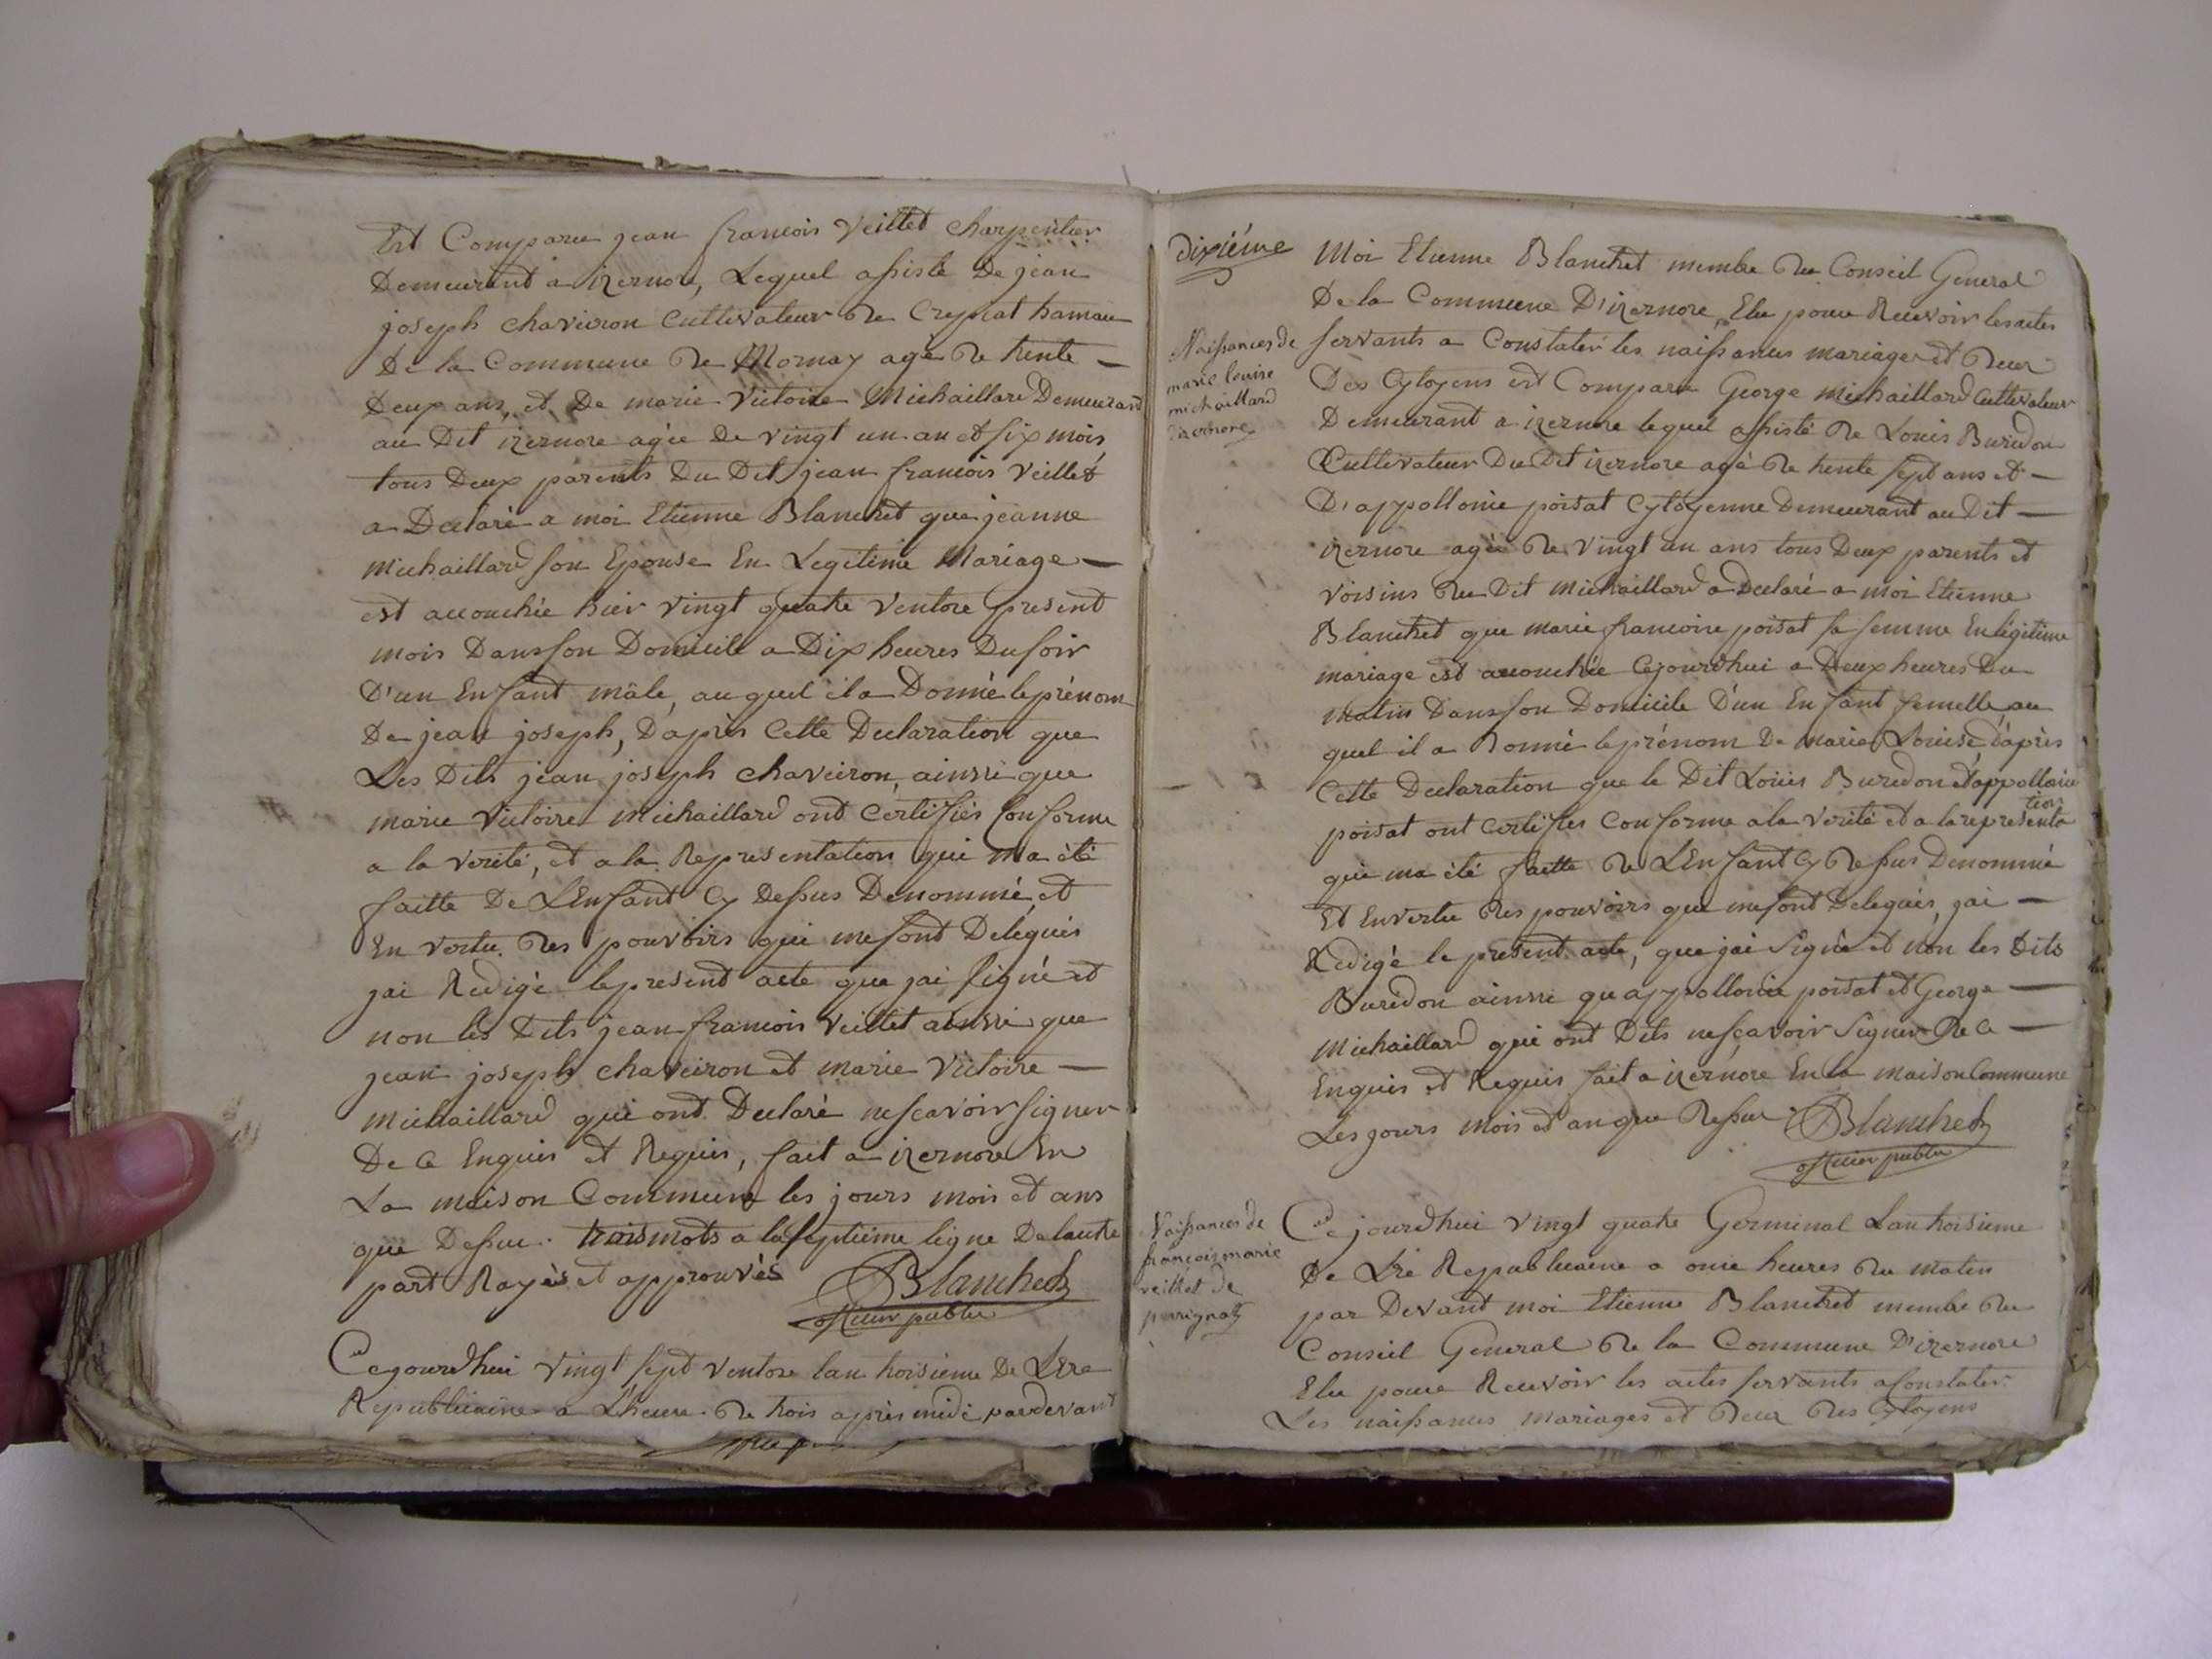 Est Comparu jean francois Veillet charpentier
Demeurant a izernore, Lequel assisté de jean
joseph chaveiron Cultivateur de Crepiat hamau
De la Commune de Mornay agé de trente —
Deux ans, et De marie Victoire Michaillard Demeurant
au Dit izernore agée De vingt un an et six mois
tous Deux parents Du Dit jean francois Veillet
a Declaré a moi Etienne Blanchet que jeanne
Michaillard son Epouse En Legitime Mariage —
est accouchée hier vingt quatre Ventose present
mois Dans son Domicile a Dix heures Du soir
D'un Enfant mâle, auquel il a Donné le prénom
De jean joseph, D'après Cette Declaration que
Les Dits jean joseph chaveiron, ainssi que
marie Victoire Michaillard ont Certifiés Conforme
a la verité, et a la Representation qui m'a été
faitte De L'Enfant Cy Dessus Denommé, et
En vertu des pouvoirs qui me sont Délégués
jai Redigé le present acte que jai signé et
non les Dits jean francois Veillet ainssi que
jean joseph chaveiron et marie Victoire —
Michaillard qui ont Declaré ne scavoir signer
De Ce Enquis et Requis, fait a izernore En
La maison Commune les jours mois et ans
que Dessus. trois mots a la septieme ligne De lautre
part Rayés et approuvés Blanchet
officier public
Cejourdhui vingt sept ventose lan troisieme De L'Ere
Republicaine a L'heure de trois après midi pardevant
Dixiéme
Moi Etienne Blanchet membre du Conseil General
De la Commune D'izernore, Elu pour Recevoir les actes
Naissances de
marie louise
michaillard
izernore
servants a Constater les naissances mariages et deces
Des Cytoyens est Comparu George Michaillard Cultivateur
Demeurant a izernore lequel assisté de Louis Buredon
Cultivateur Du Dit izernore agé de trente sept ans et —
D'appollonie poisat Cytoyenne Demeurant au Dit —
izernore agée de vingt un ans tous Deux parents et
voisins du Dit Michaillard a Declaré a moi Etienne
Blanchet que marie francoise poisat sa femme En légitime
mariage est accouchée Cejourdhui a Deux heures Du
matin Dans son Domicile D'un Enfant femelle, au
quel il a Donné le prénom De marie Louise, d'après
Cette Declaration que le Dit Louis Buredon et appollonie
poisat ont Certifiés Conforme a la verité et a la representation
qui ma été faitte de L'Enfant Cy dessus Denommé
Et En vertu des pouvoirs que me sont Delegués, jai —
Redigé le present acte, que jai Signé et non les Dits
Buredon ainssi qu'appollonie poisat et George —
Michaillard qui ont Dits ne sçavoir Signer De Ce —
Enquis et Requis fait a izernore En la maison Commune
Les jours mois et an que dessus. Blanchet
officier public
Naissances de
francois marie
veillet de
perignat
Cejourdhui vingt quatre Germinal Lan troisieme
De L'ére Republicaine a onze heures du matin
par Devant moi Etienne Blanchet membre du
Conseil General de la Commune D'izernore
Elu pour Recevoir les actes servants a Constater
Les naissances mariages et deces des Cytoyens